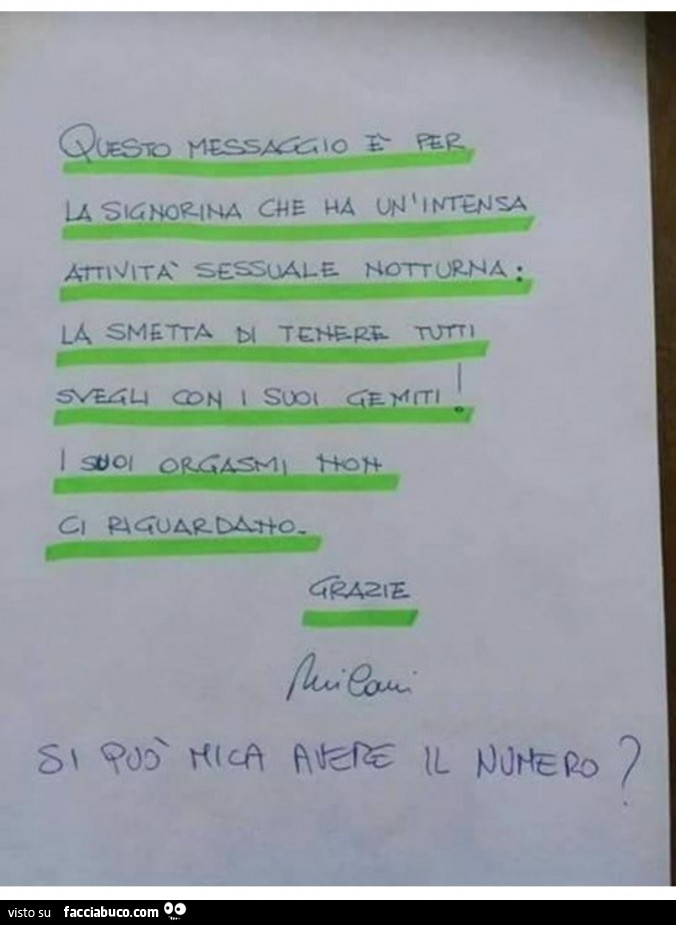 QUESTO MESSAGGIO È PER
LA SIGNORINA CHE HA UN'INTENSA
ATTIVITA' SESSUALE NOTTURNA:
LA SMETTA DI TENERE TUTTI
SVEGLI CON I SUOI GEMITI!
I SUOI ORGASMI NON
CI RIGUARDANO.
GRAZIE
Milani
SI PUÒ MICA AVERE IL NUMERO?
visto su facciabuco.com